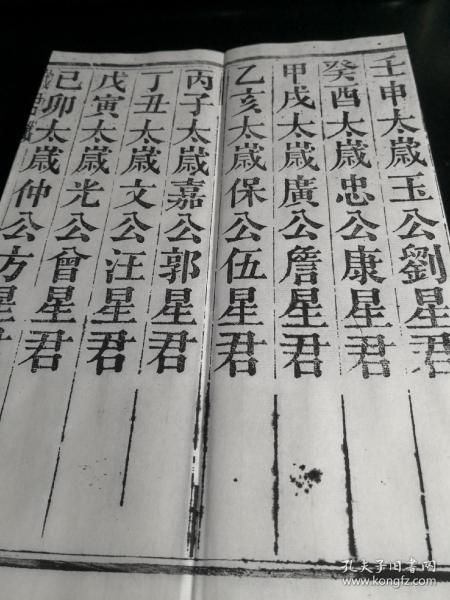 壬申太歲玉公劉星君
癸酉太歲忠公康星君
甲戌太歲廣公詹星君
乙亥太歲保公伍星君
丙子太歲嘉公郭星君
丁丑太歲文公汪星君
戊寅太歲光公曾星君
己卯太歲仲公方星
孔夫子旧书网
www.kongfz.com